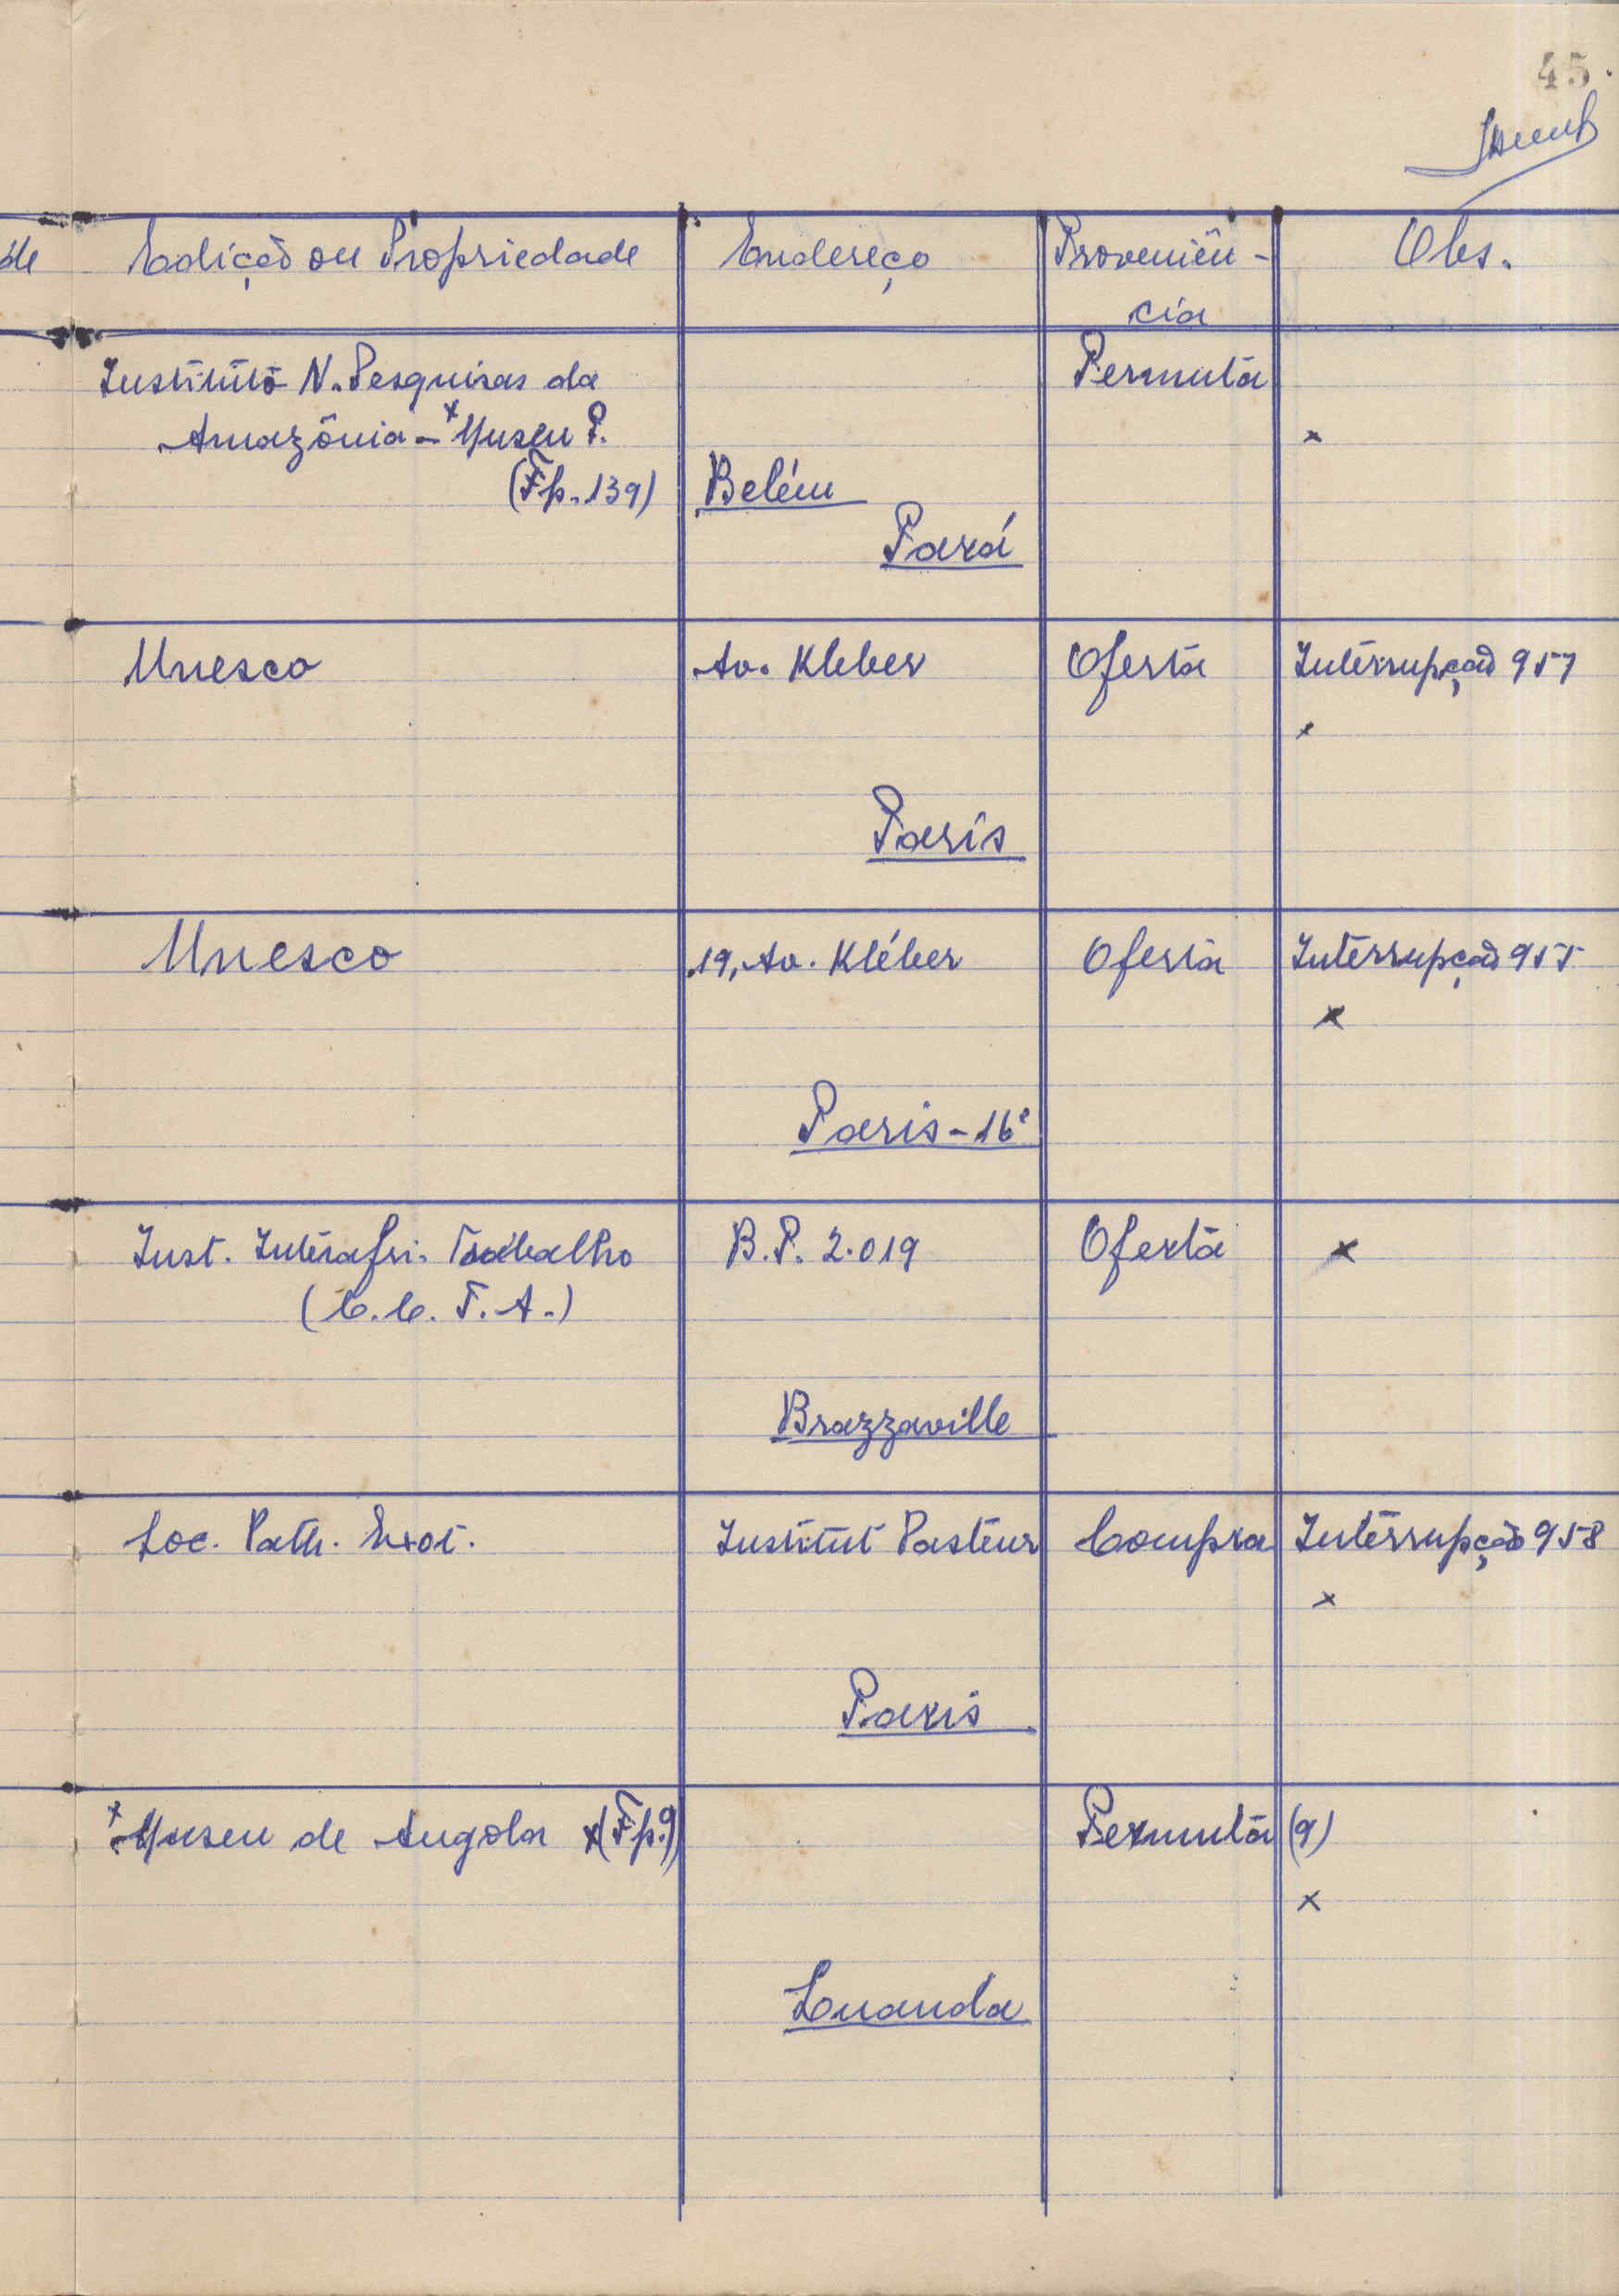 45.
de Edição ou Propriedade Endereço Proveniên- Obs.
cia
Instituto N. Pesquisas da Permuta
Amazônia - x Museu P. x
(Fp. 139) Belém
Pará
Unesco Av. Kleber Oferta Interrupção 957
x
Paris
Unesco 19, Av. Kléber Oferta Interrupção 955
x
Paris - 16e
Inst. Interafri. Trabalho B.P. 2.019 Oferta x
(C.C.T.A.)
Brazzaville
Soc. Path. Exot. Institut Pasteur Compra Interrupção 958
x
Paris
x Museu de Angola x (Fp. 9) Permuta (9)
x
Luanda